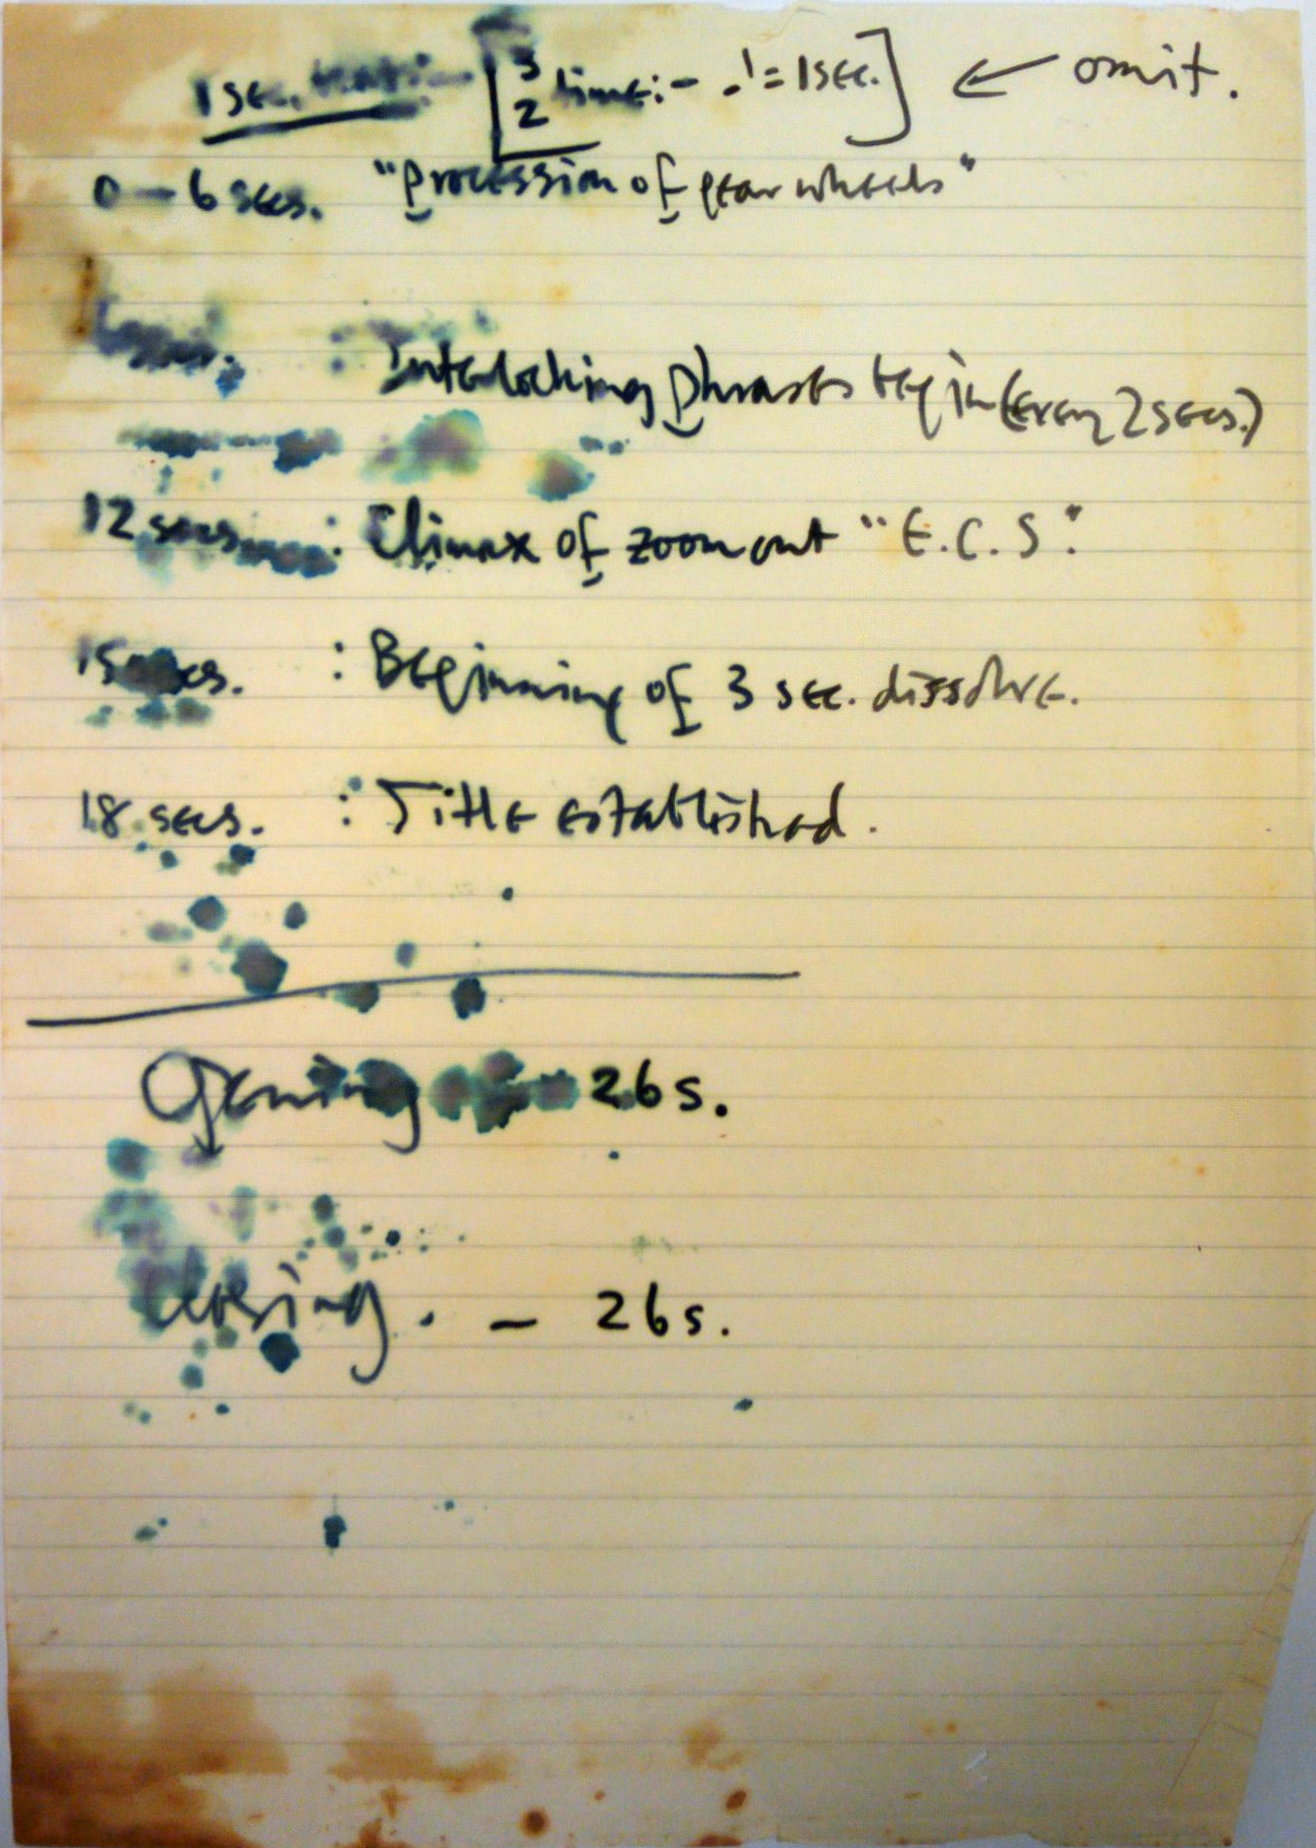 1 sec. [3/2 time:- ♩ = 1 sec.] ← omit.
0 — 6 secs. "Procession of gear wheels"
: Interlocking phrases begin (every 2 secs.)
12 secs : Climax of zoom out "E.C.S".
15 secs. : Beginning of 3 sec. dissolve.
18 secs. : Title established.
Opening 26s.
Closing. - 26s.